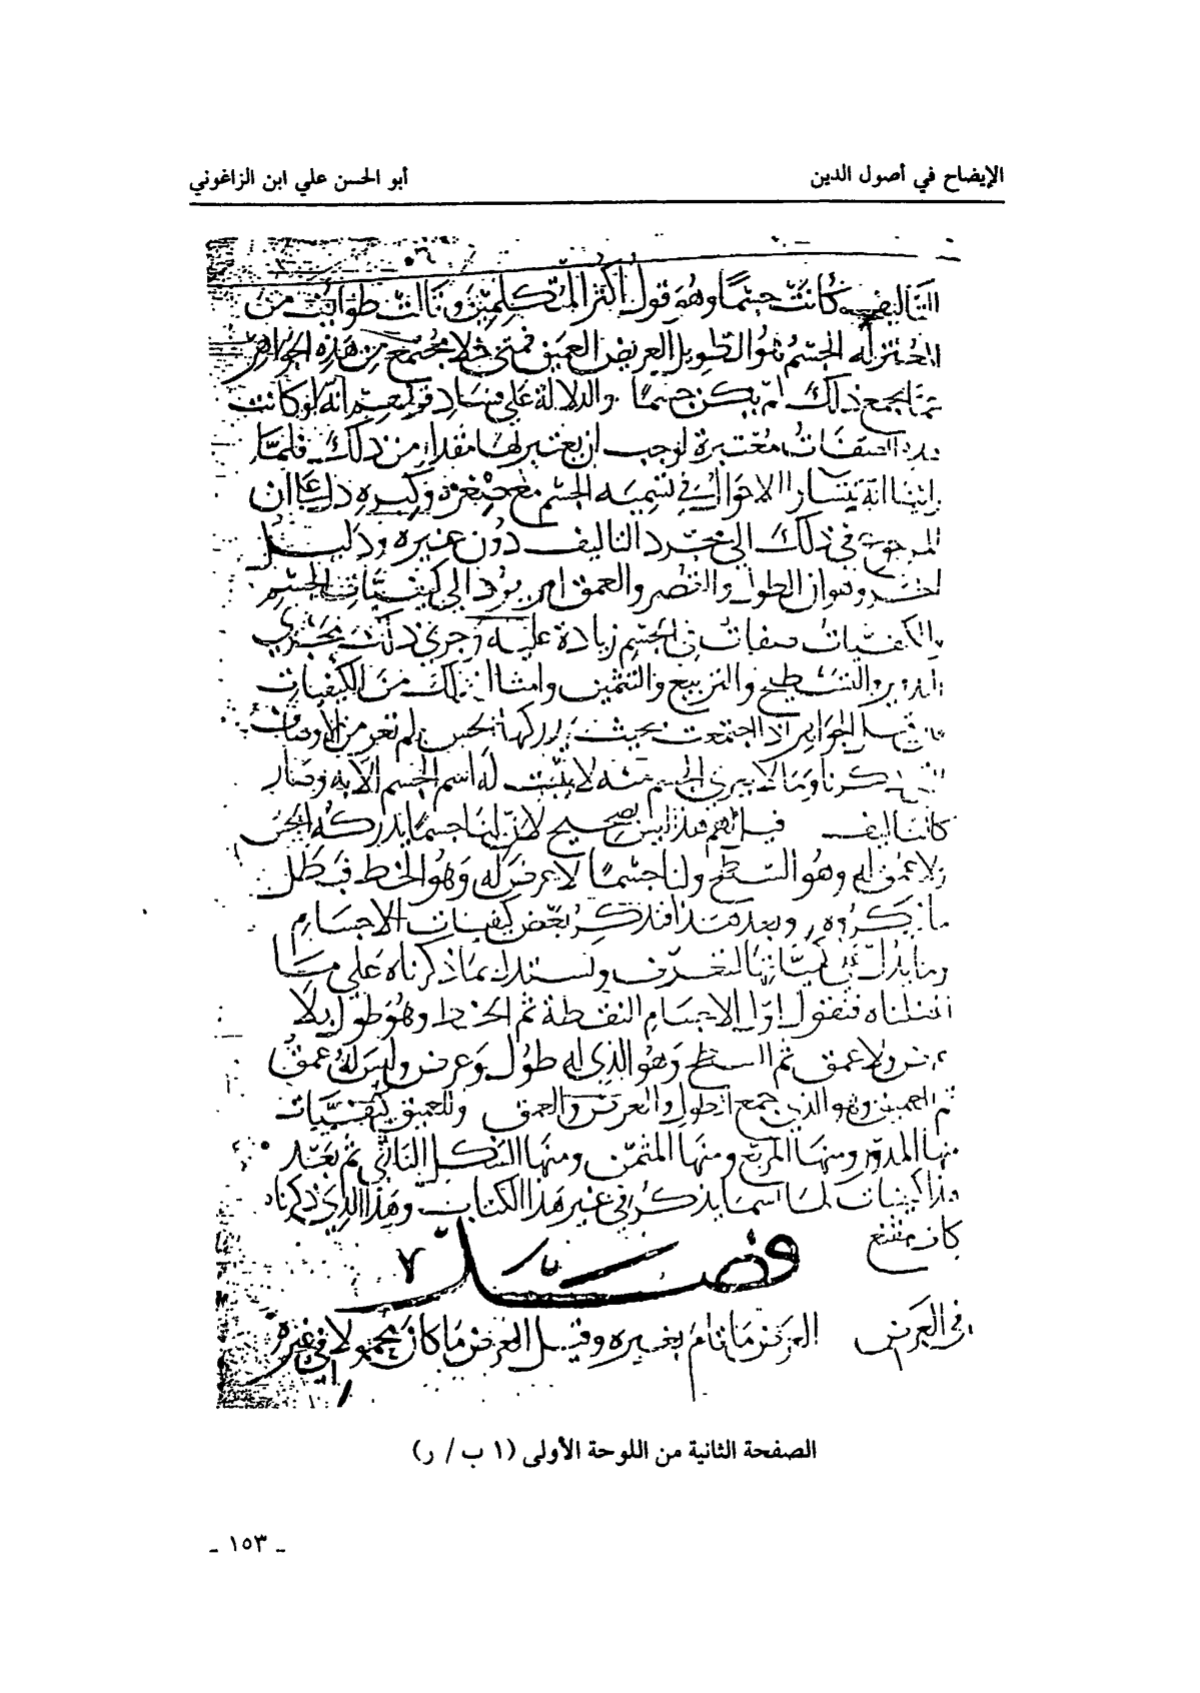 الإيضاح في أصول الدين
أبو الحسن علي ابن الزاغوني
التأليف كانت جسمًا وهو قول أكثر المتكلمين وقالت طوائف من
المعتزله الجسم هو الطويل العريض العميق فمتى خلا مجتمع من هذه الجواهر
مما يجمع ذلك لم يكن جسمًا والدلالة على فساد قولهم انه لو كانت
الصفات معتبرة لوجب ان يعتبر لها مقدار من ذلك فلما
راينا انه يتساوا الاحوال في تسميه الجسم مع صغره وكبره ذلك على ان
المرجوع في ذلك الى مجرد التاليف دون غيره ودليل
اخر وهو ان الطول والقصر والعمق امر يؤد الى كيفيات الجسم
والكيفيات صفات في الجسم زيادة عليه وجرى ذلك مجرى
التدوير والتسطيح والتربيع والتثمين وامثال ذلك من الكيفيات
الجواهر اذا اجتمعت بحيث يدركها الحس لم تعر من الاوصاف
ذكرنا وما لا يبرى الجسم منه لا يثبت له اسم الجسم الا به وصار
كالتاليف قيل لهم هذا ليس صحيح لان لنا جسما يدركه الحس
ولا عمق له وهو السطح ولنا جسمًا لا عرض له وهو الخط فبطل
ما ذكروه وبعد هذا فنذكر بعض كيفيات الاجسام
وما يدل على كمياتها لتعرف ونستدل بما ذكرناه على ما
اصلناه فنقول اول الاجسام النقطة ثم الخط وهو طول بلا
عرض ولا عمق ثم السطح وهو الذي له طول وعرض وليس له عمق
ثم العميق وهو الذي جمع الطول والعرض والعمق وللعميق كيفيات
منها المدور ومنها المربع ومنها المثمن ومنها الشكل الناتي ثم بعد
هذا كيفيات لها اسما يذكر في غير هذا الكتاب وهذا الذي ذكرناه
كاف مقنع
فصل ٧
في العرض العرض ما قام بغيره وقيل العرض ما كان محمولا في غيره
الصفحة الثانية من اللوحة الأولى (١ ب / ر)
ـ ١٥٣ ـ